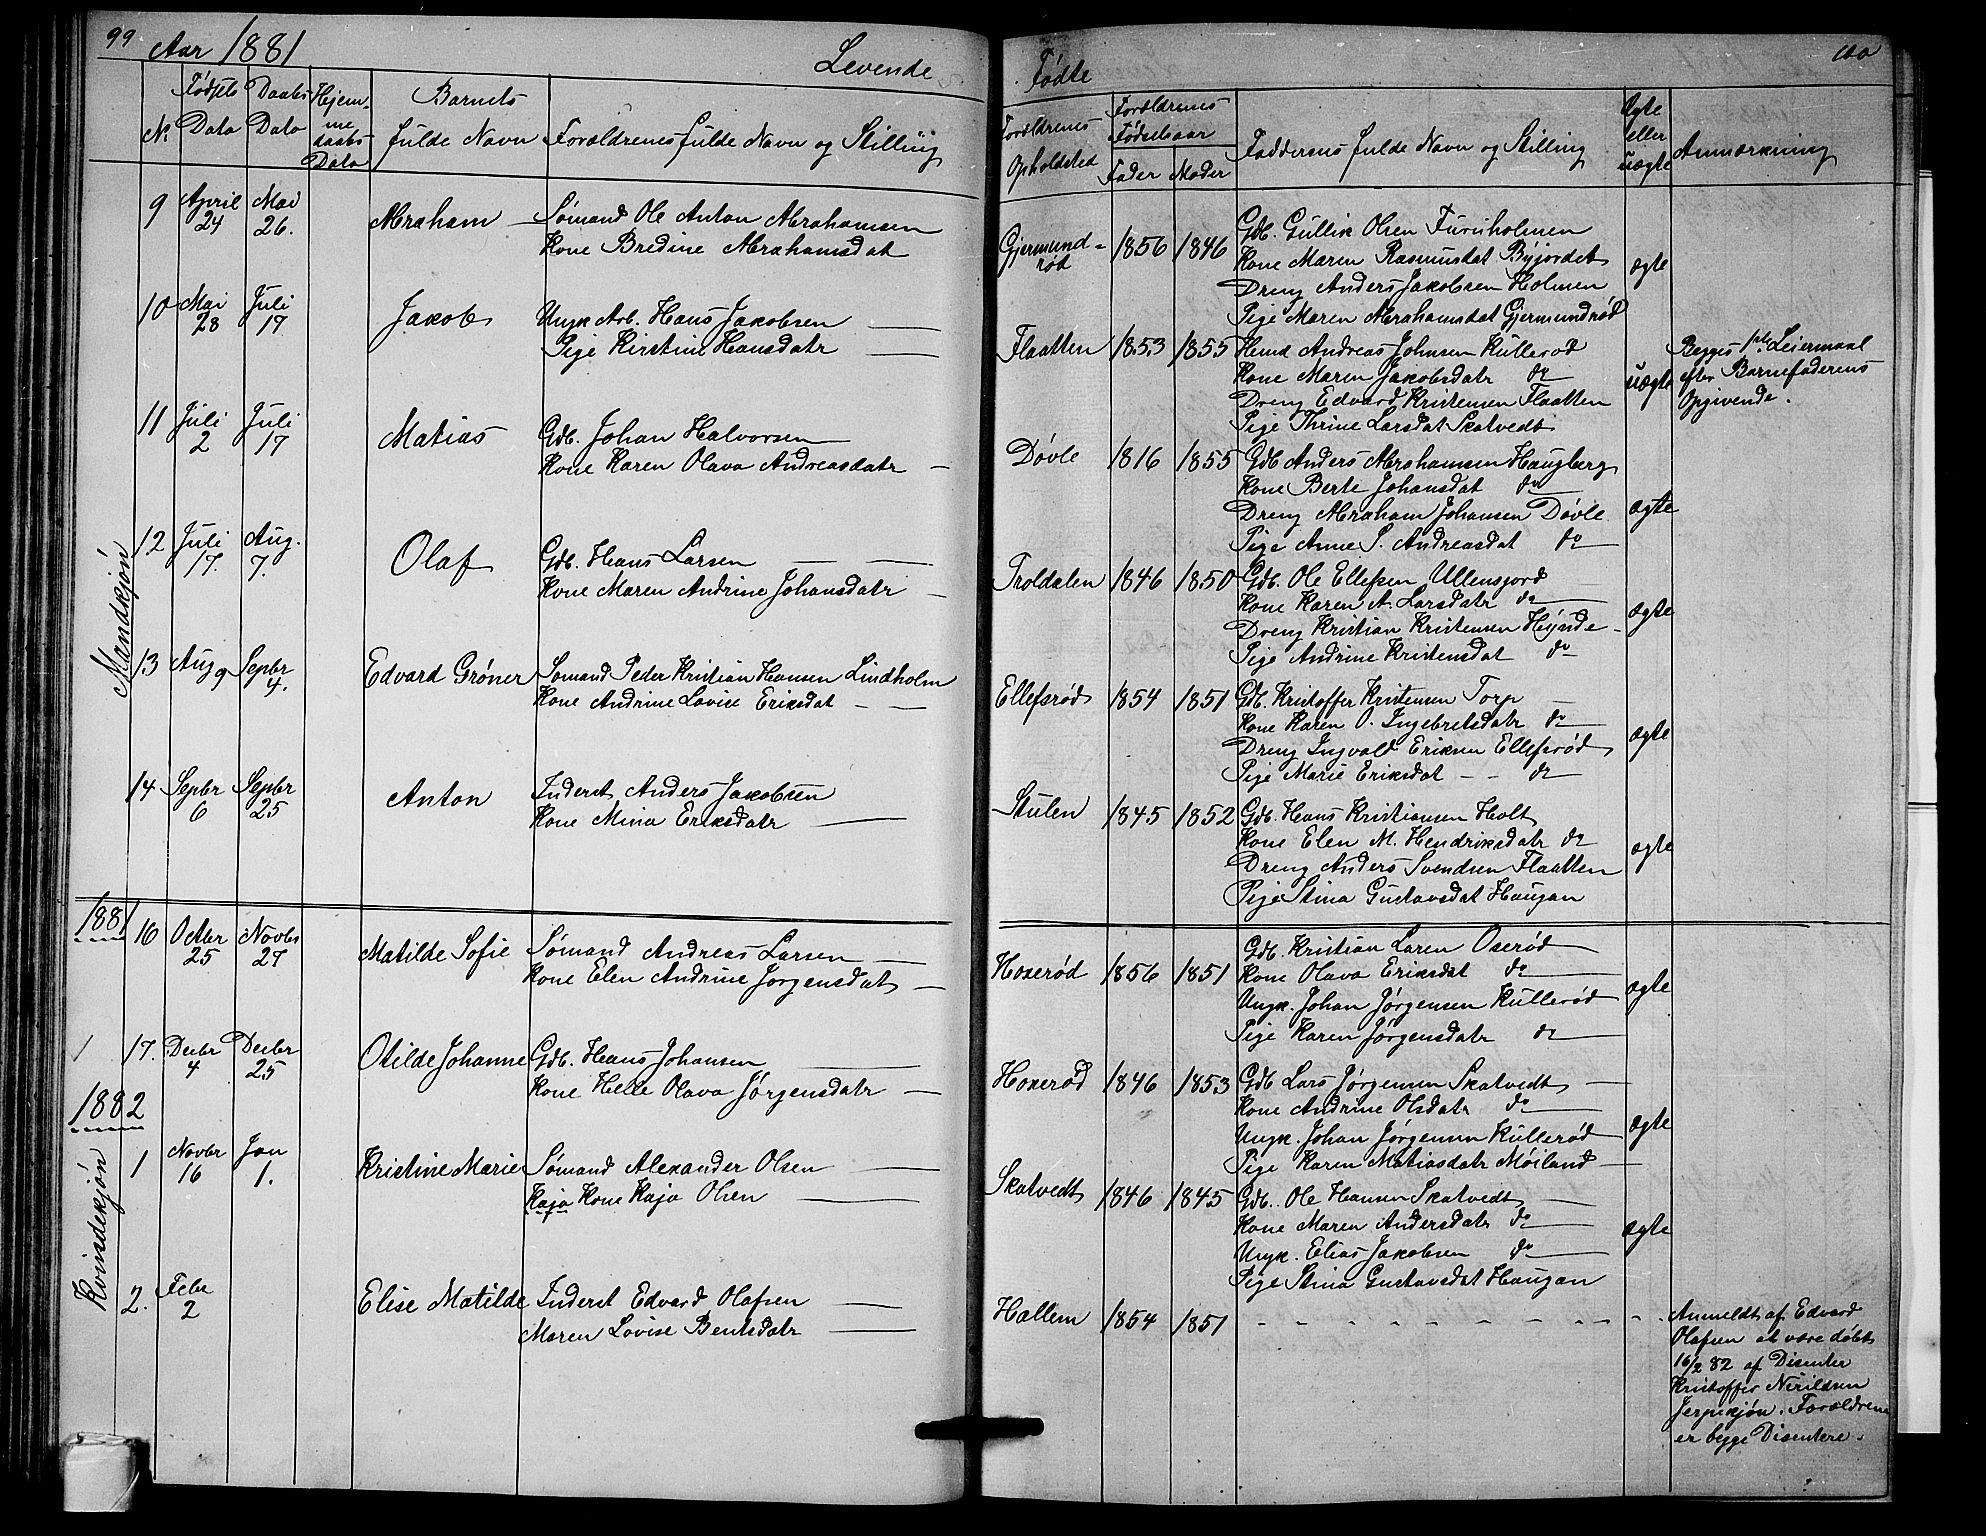 99 Aar 1881 Levende
Fødte 100
No Fødsels Dato Daabs Dato Hjemmedaabs Dato Barnets fulde Navn Forældrenes fulde Navn og Stilling
Forældrenes Opholdsted Forældrenes Fødselsaar Fader Moder Faddernes fulde Navn og Stilling Ægte eller uægte Anmærkning
Mandkjøn
9 April 24 Mai 26. Abraham
Sømand Ole Anton Abrahamsen
Kone Bredine Abrahamsdat
Gjermundrød 1856 1846
Gdb. Gullik Olsen Furuholmen
Kone Maren Rasmusdat Býjordet
Dreng Anders Jakobsen Holmen
Pige Maren Abrahamsdat Gjermundrød
ægte
10 Mai 28 Juli 17 Jakob
Ungk Arb. Hans Jakobsen
Pige Kirstine Hansdatr
Flaatten 1853 1855
Hemd Andreas Johnsen Kullerød
Kone Maren Jakobsdatr do
Dreng Edvard Kristensen Flaatten
Pige Thrine Larsdat Skatvedt
uægte
Begges 1ste Leiermaal
efter Barnefaderens
Opgivende.
11 Juli 2 Juli 17 Matias
Gdb. Johan Halvorsen
Kone Karen Olava Andreasdatr
Døvle 1816 1855
Gdb Anders Abrahamsen Haugberg
Kone Berte Johansdat do
Dreng Abraham Johansen Døvle
Pige Anne S. Andreasdat do
ægte
12 Juli 17. Aug. 7. Olaf
Gdb. Hans Larsen
Kone Maren Andrine Johansdatr
Troldalen 1846 1850
Gdb. Ole Ellefsen Ullensjord
Kone Karen A. Larsdatr do
Dreng Kristian Kristensen Hýnde
Pige Andrine Kristensdat do
ægte
13 Aug 9 Septbr 4. Edvard Grøner
Sømand Peder Kristian Hansen Lindholm
Kone Andrine Lovise Eriksdat
Ellefsrød 1854 1851
Gdb. Kristoffer Kristensen Torp
Kone Karen O. Ingebretsdatr do
Dreng Ingvald Eriksen Ellefsrød
Pige Marie Eriksdat do
ægte
14 Septbr 6 Septbr 25 Anton
Inderst Anders Jakobsen
Kone Mina Eriksdatr
Stulen 1845 1852
Gdb. Hans Kristiansen Holt
Kone Elen M. Hendriksdatr do
Dreng Anders Svendsen Flaatten
Pige Stina Gustavsdat Haugan
ægte
1881
Kvindekjøn
16 Octbr 25 Novbr 27 Matilde Sofie
Sømand Andreas Larsen
Kone Elen Andrine Jørgensdat
Hoxerød 1856 1851
Gdb. Kristian Larsen Oserød
Kone Olava Eriksdat do
Ungk. Johan Jørgensen Kullerød
Pige Karen Jørgensdatr do
ægte
17. Decbr 4 Decbr 25 Otilde Johanne
Gdb. Hans Johansen
Kone Helle Olava Jørgensdatr
Hoxerød 1846 1853
Gdb Lars Jørgensen Skatvedt
Kone Andrine Olsdatr do
Ungk. Johan Jørgensen Kullerød
Pige Karen Matiasdatr Møiland
ægte
1882
1 Novbr 16 Jan 1. Kristine Marie
Sømand Alexander Olsen
Kaja Kone Kaja Olsen
Skatvedt 1846 1845
Gdb. Ole Hansen Skatvedt
Kone Maren Andersdatr do
Ungk. Elias Jakobsen do
Pige Stina Gustavsdat Haugan
ægte
2. Febr 2 Elise Matilde
Inderst Edvard Olafsen
Maren Lovise Bentsdatr
Hallem 1854 1851
Anmeldt af Edvard
Olafsen at være døbt
16/2 82 af Disenter
Kristoffer
Jerpekjøn. Forældrene
er begge Disentere.